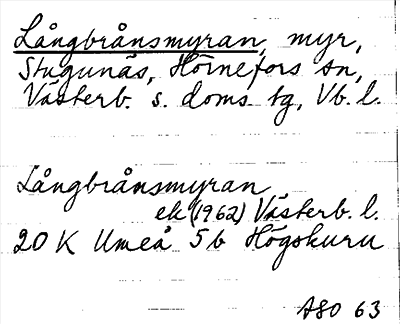 Långbrånsmyran, myr,
Stugunäs, Hörnefors sn,
Västerb. s. doms tg, Vb. l.
Långbrånsmyran
ek (1962) Västerb. l.
20 K Umeå 5b Högskuru
ASO 63